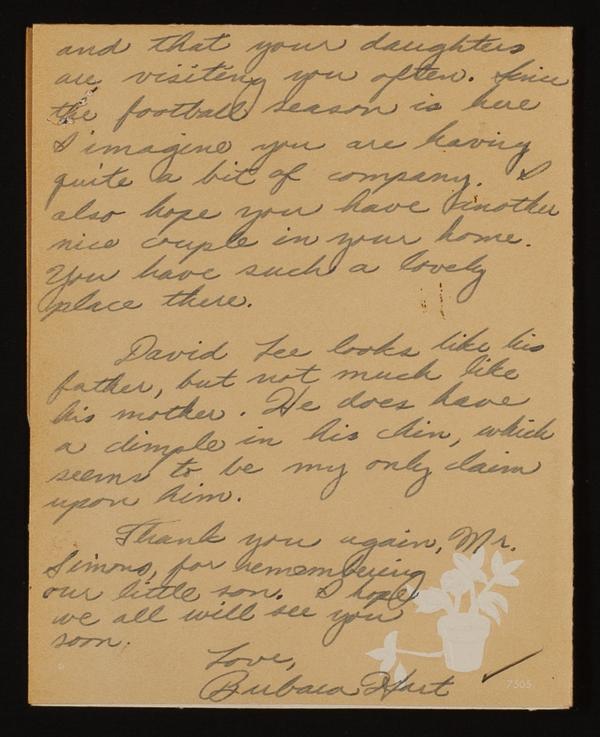 and that your daughters
are visiting you often. Since
the football season is here
I imagine you are having
quite a bit of company. I
also hope you have another
nice couple in your home.
You have such a lovely
place there.
David Lee looks like his
father, but not much like
his mother. He does have
a dimple in his chin, which
seems to be my only claim
upon him.
Thank you again, Mr.
Simons, for remembering
our little son. I hope
we all will see you
soon.
Love,
Barbara Hart
7505